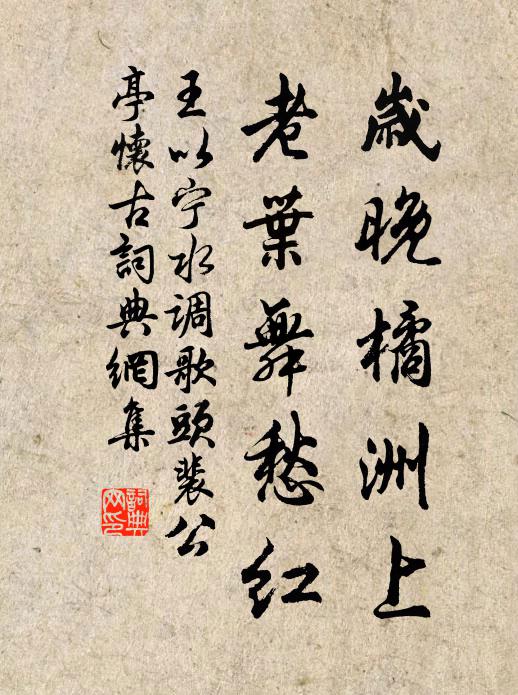 歲晚橘洲上
老葉舞愁红
王以宁水调歌頭裴公
亭懷古詞典網集
詞典
网印